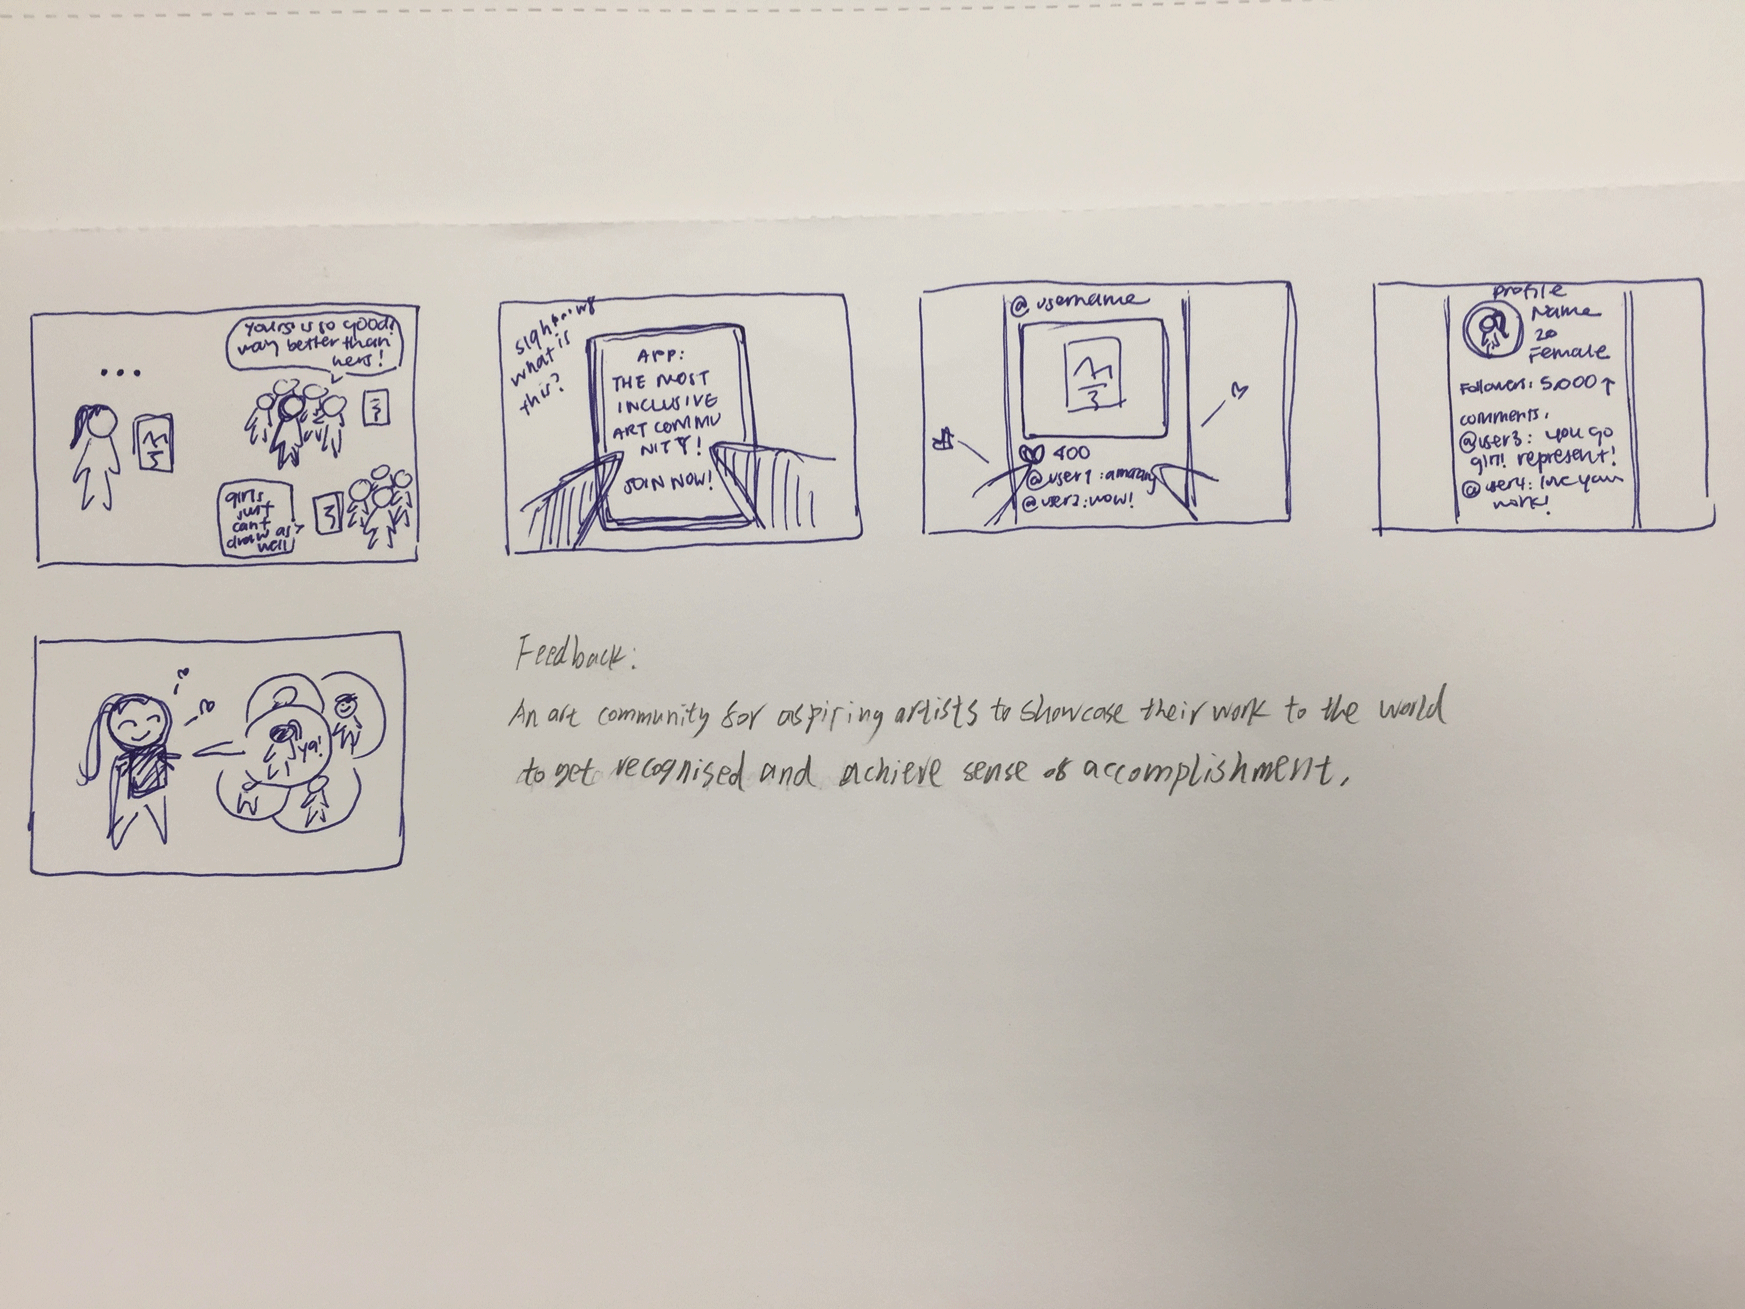 ...
yours is so good!
way better than
hers!
girls
just
can't
draw as
well
what is
this?
APP:
THE MOST
INCLUSIVE
ART COMMU
NITY!
JOIN NOW!
@username
400
@user1: amazing
@user2: wow!
profile
Name
20
Female
Followers: 5,000↑
comments:
@user3: you go
girl! represent!
@user4: love your
work!
ya!
Feedback:
An art community for aspiring artists to showcase their work to the world
to get recognised and achieve sense of accomplishment.